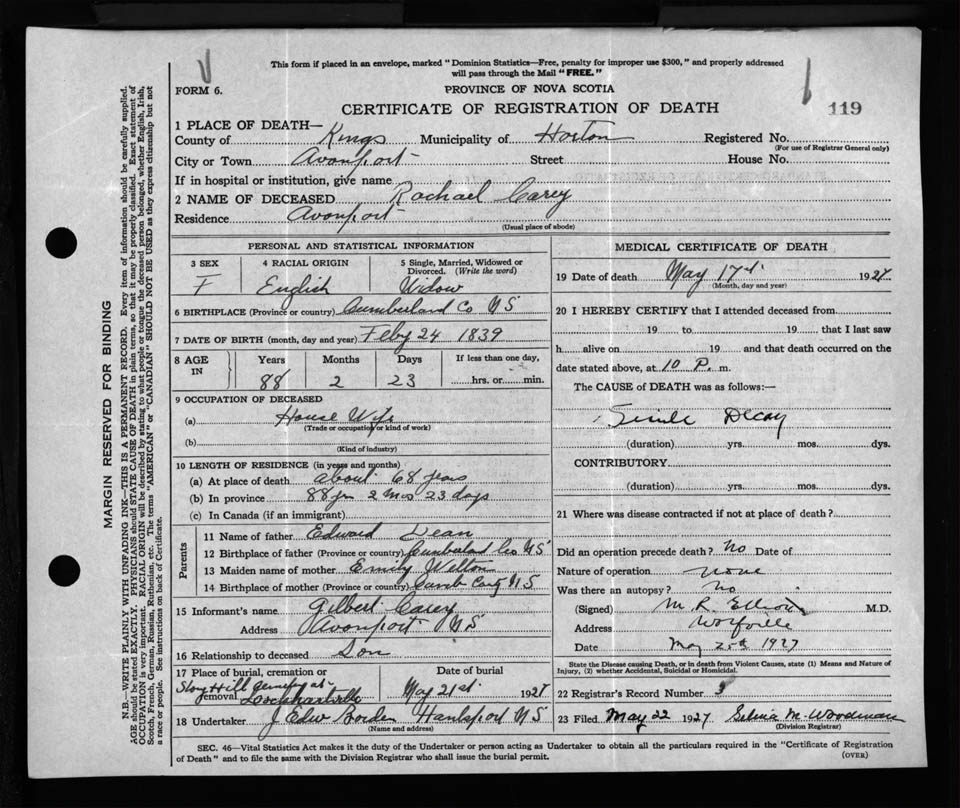 This form if placed in an envelope, marked "Dominion Statistics—Free, penalty for improper use $300," and properly addressed
will pass through the Mail "FREE."
FORM 6.
PROVINCE OF NOVA SCOTIA
CERTIFICATE OF REGISTRATION OF DEATH
119
1 PLACE OF DEATH—
County of Kings Municipality of Horton Registered No.
(For use of Registrar General only)
City or Town Avonport Street House No.
If in hospital or institution, give name
2 NAME OF DECEASED Rachael Carey
Residence Avonport
(Usual place of abode)
PERSONAL AND STATISTICAL INFORMATION
3 SEX 4 RACIAL ORIGIN 5 Single, Married, Widowed or
Divorced. (Write the word)
F English Widow
6 BIRTHPLACE (Province or country) Cumberland Co NS
7 DATE OF BIRTH (month, day and year) Feby 24 1839
8 AGE IN Years Months Days If less than one day,
88 2 23 hrs. or min.
9 OCCUPATION OF DECEASED
(a) House Wife
(Trade or occupation or kind of work)
(b)
(Kind of industry)
10 LENGTH OF RESIDENCE (in years and months)
(a) At place of death about 68 years
(b) In province 88 yrs 2 mos 23 days
(c) In Canada (if an immigrant)
Parents
11 Name of father Edward Dean
12 Birthplace of father (Province or country) Cumberland Co NS
13 Maiden name of mother Emily Welton
14 Birthplace of mother (Province or country) Cumb Cnty NS
15 Informant's name Gilbert Carey
Address Avonport NS
16 Relationship to deceased Son
17 Place of burial, cremation or Date of burial
removal Stony Hill Cemetery at Lockhartville May 21st 1927
18 Undertaker J Edw Borden Hantsport NS
(Name and address)
MEDICAL CERTIFICATE OF DEATH
19 Date of death May 17th 1927
(Month, day and year)
20 I HEREBY CERTIFY that I attended deceased from
19 to 19 that I last saw
h alive on 19 and that death occurred on the
date stated above, at 10 P. m.
The CAUSE of DEATH was as follows:—
Senile Decay
(duration) yrs. mos. dys.
CONTRIBUTORY
(duration) yrs. mos. dys.
21 Where was disease contracted if not at place of death?
Did an operation precede death? No Date of
Nature of operation None
Was there an autopsy? No
(Signed) M. R. Elliott M.D.
Address Wolfville
Date May 25th 1927
State the Disease causing Death, or in death from Violent Causes, state (1) Means and Nature of
Injury, (2) whether Accidental, Suicidal or Homicidal.
22 Registrar's Record Number 3
23 Filed May 22 1927 Selina M. Woodman
(Division Registrar)
SEC. 46—Vital Statistics Act makes it the duty of the Undertaker or person acting as Undertaker to obtain all the particulars required in the "Certificate of Registration
of Death" and to file the same with the Division Registrar who shall issue the burial permit.
(OVER)
MARGIN RESERVED FOR BINDING
N.B.—WRITE PLAINLY WITH UNFADING INK—THIS IS A PERMANENT RECORD. Every item of information should be carefully supplied.
AGE should be stated EXACTLY. PHYSICIANS should STATE CAUSE OF DEATH in plain terms, so that it may be properly classified. Exact statement of
OCCUPATION is very important. RACIAL ORIGIN will be described by stating to what people or tongue the deceased person belonged, whether English, Irish,
Scotch, French, German, Russian, Ruthenian, etc. The terms "AMERICAN" or "CANADIAN" SHOULD NOT BE USED as they express citizenship but not
a race or people. See instructions on back of Certificate.